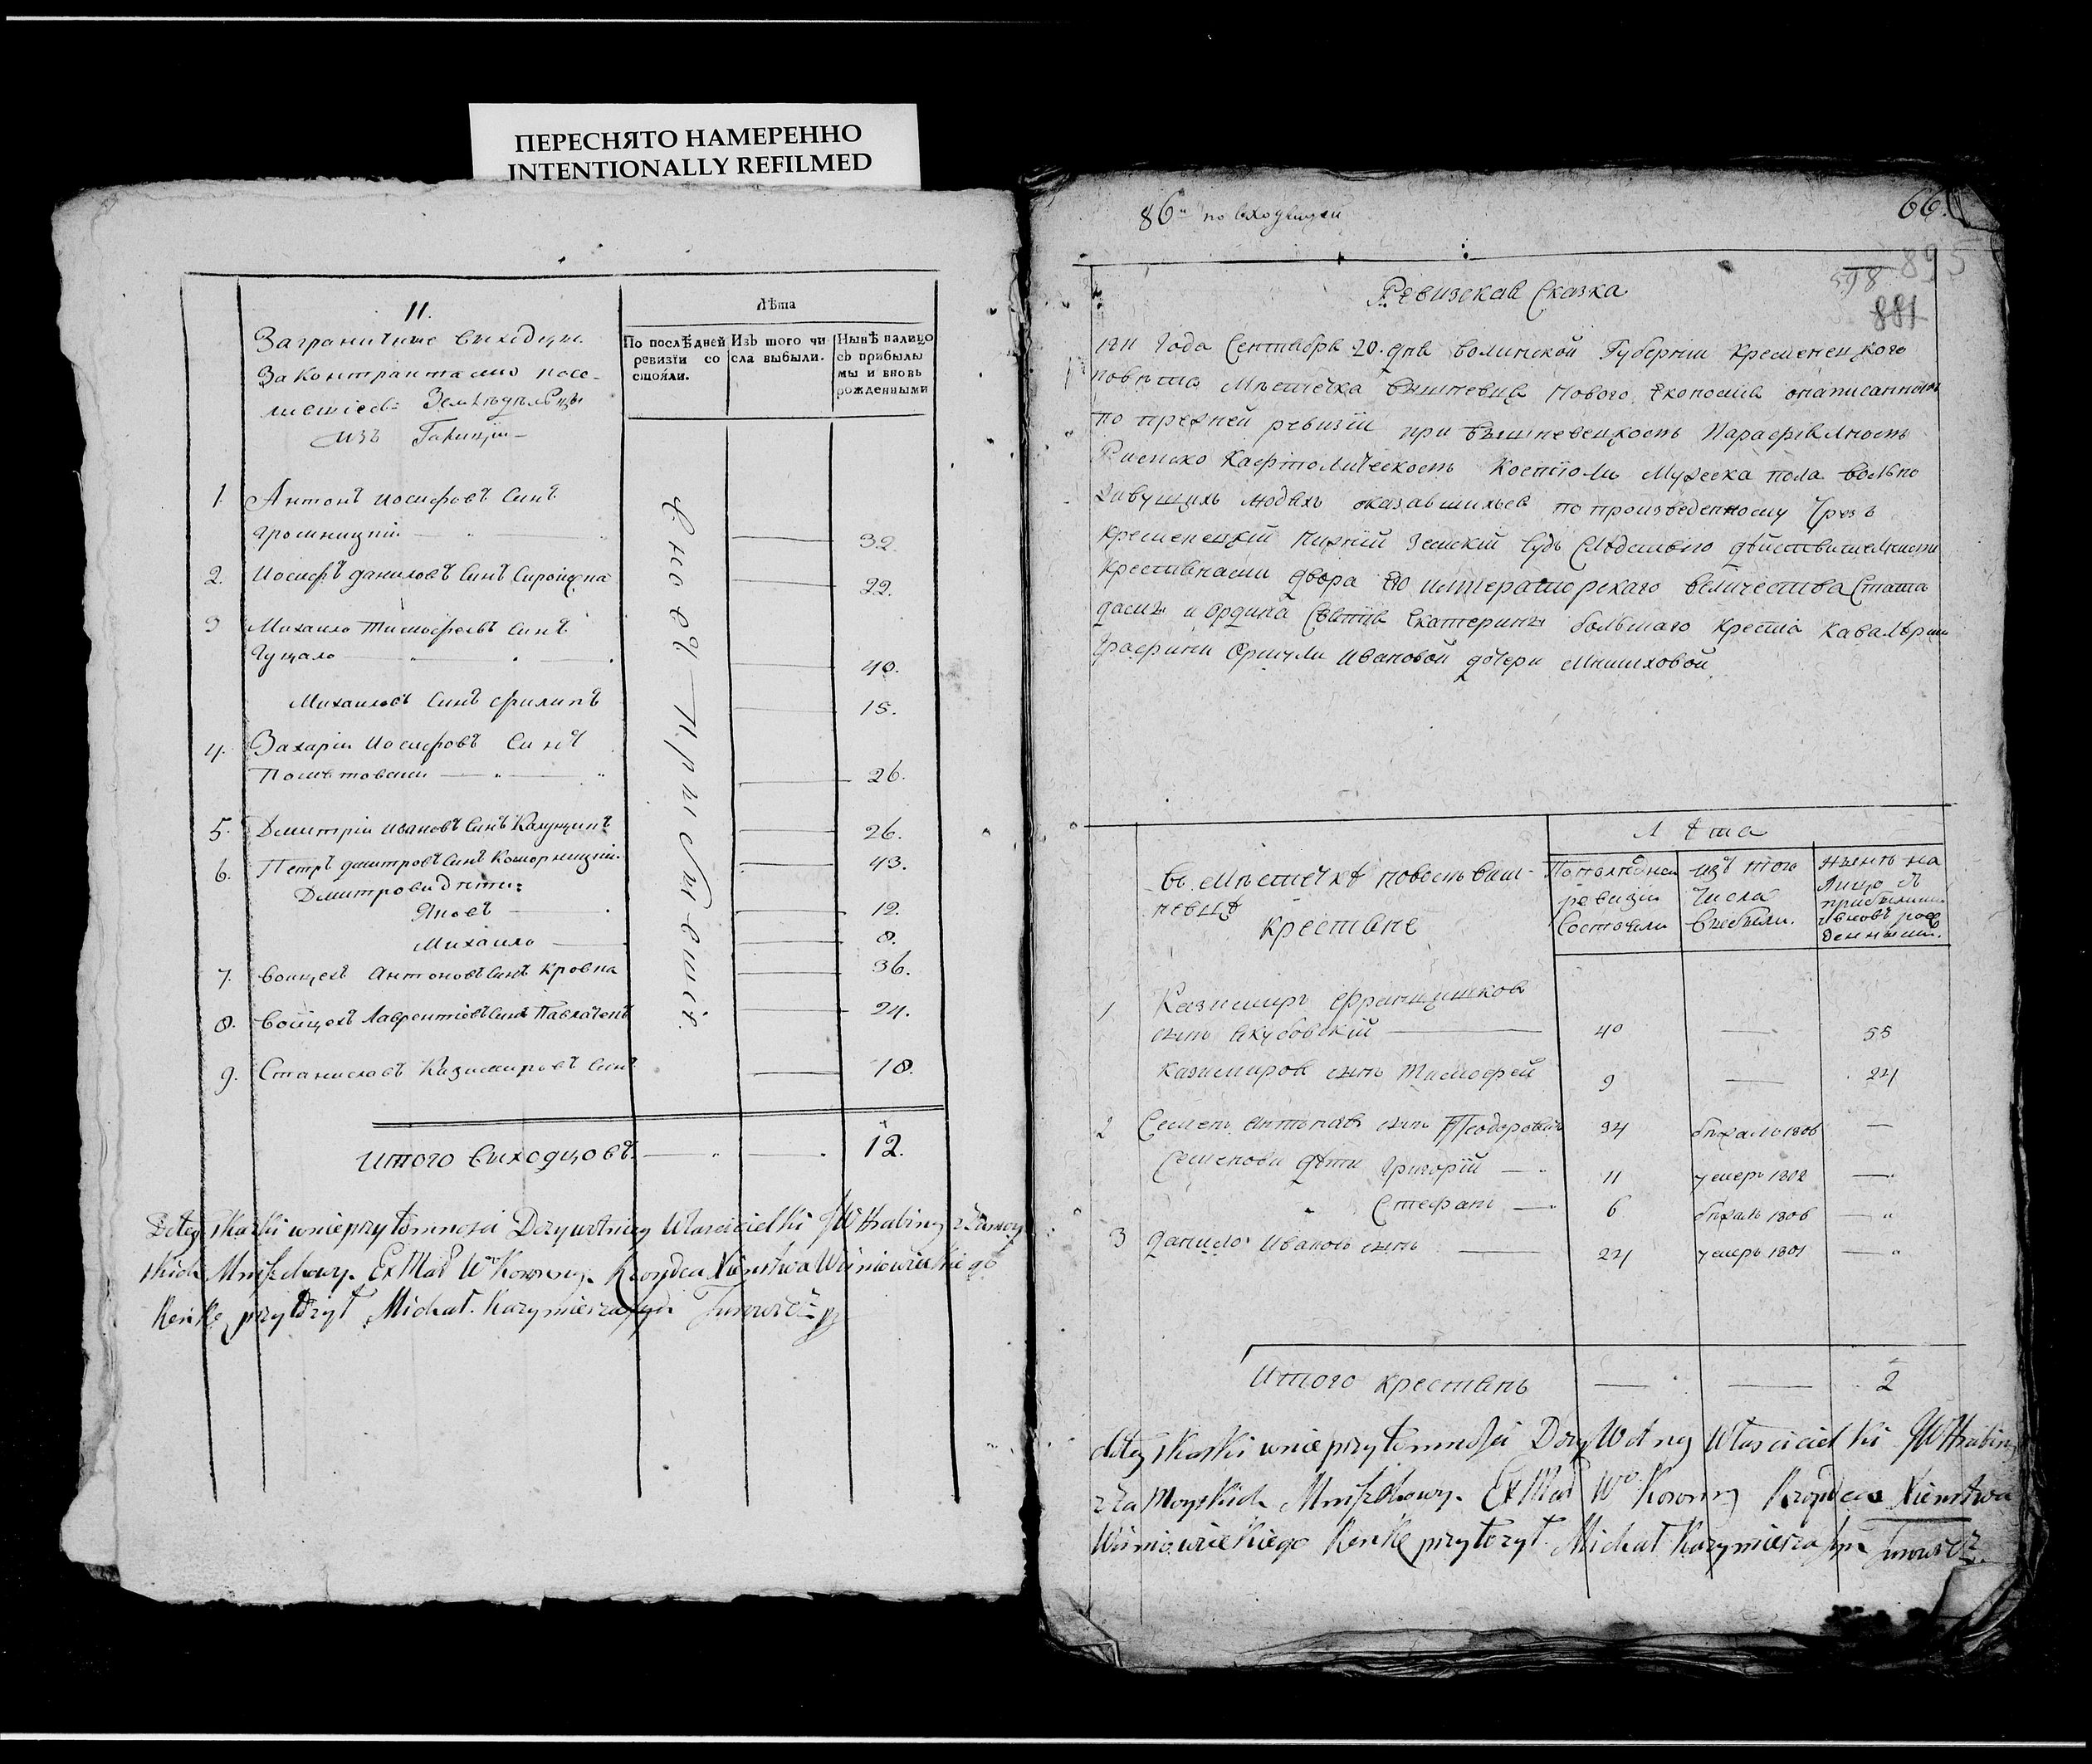 ПЕРЕСНЯТО НАМЕРЕННО
INTENTIONALLY REFILMED
11.
Заграничные виходцы
За Контрактамы посе-
лившіесь Земледельцы
изъ Галиціи
Лѣта
По послѣдней ревизіи состояли.
Изъ того числа выбыли.
Нынѣ налицо съ прибылыми и вновь рожденными
Вновь Прибывшіе
1. Антонъ иосифовъ Синъ
Громницкій 32.
2. Иосифъ даниловъ Синъ 22.
3 Михаило Тимофеевъ Синъ
40.
Михаиловъ Синъ филипъ 15.
4. Захарій Иосифовъ Синъ
26.
5. Дмитрій ивановъ Синъ 26.
6. Петръ дмитровъ Синъ Коморницкій 43.
Дмитрови дѣти:
Яковъ 12.
Михаило 8.
7. Войцехъ Антоновъ Синъ 36.
8. Войцехъ Лаврентіевъ Синъ 24.
9. Станиславъ Казимировъ Синъ 18.
Итого виходцовъ. 12.
Do tey skaski w nieprzytomnosci Dozywotniey Włascicielki JW Hrabiny z Zamoy
skich Mniszchowy. Ex Mar Wo Koronny. Rządca Xięstwa Wisniowieckiego
Renkę przyłożył Michał Kazymierza syn
86 по входящей
66.
895
598
881
Ревизская Сказка
1811 Года Сентября 20. дня Волинской Губерніи Кременецкого
повѣта Мѣстечка Вишневца Нового Економіи
по прежней ревизіи при Вишневецкомъ
Римско Кафтолическомъ Костіоли Мужеска пола вольно
живущихъ людяхъ оказавшихься по произведенному Чрезъ
Кременецкій Нижній Земскій Судъ Следствию действительными
крестьянами двора Его императорскаго величества Статс
дамы и Ордина Святія Екатерины большаго креста Кавалерши
Графини Ивановой дочери Мнишховой.
Лѣта
въ Мѣстечкѣ новомъ Виш-
невцѣ
крестяне
По последней ревизіи Состояли
изъ того Числа Выбыли.
Нынѣ на Лицо съ прибылыми и вновь рожденными.
1 Казимиръ Францишков
синъ Якубовскій 40 55
Казимиров синъ Тимофей 9 24
2 Семенъ синъ 34 бѣжалъ 1806
Семенови дѣти Григорій 11 умеръ 1802
Стефанъ 6 бѣжалъ 1806
3 Данило Ивановъ синъ 24 умеръ 1801
Итого крестянъ 2
do tey skaski w nieprzytomnosci Dozywotney Włascicielki JW Hrabiny
z Zamoyskich Mniszchowy. Ex Mar Wo Koronny Rządca Xięstwa
Wisniowieckiego Renkę przyłożył. Michał Kazymierza syn